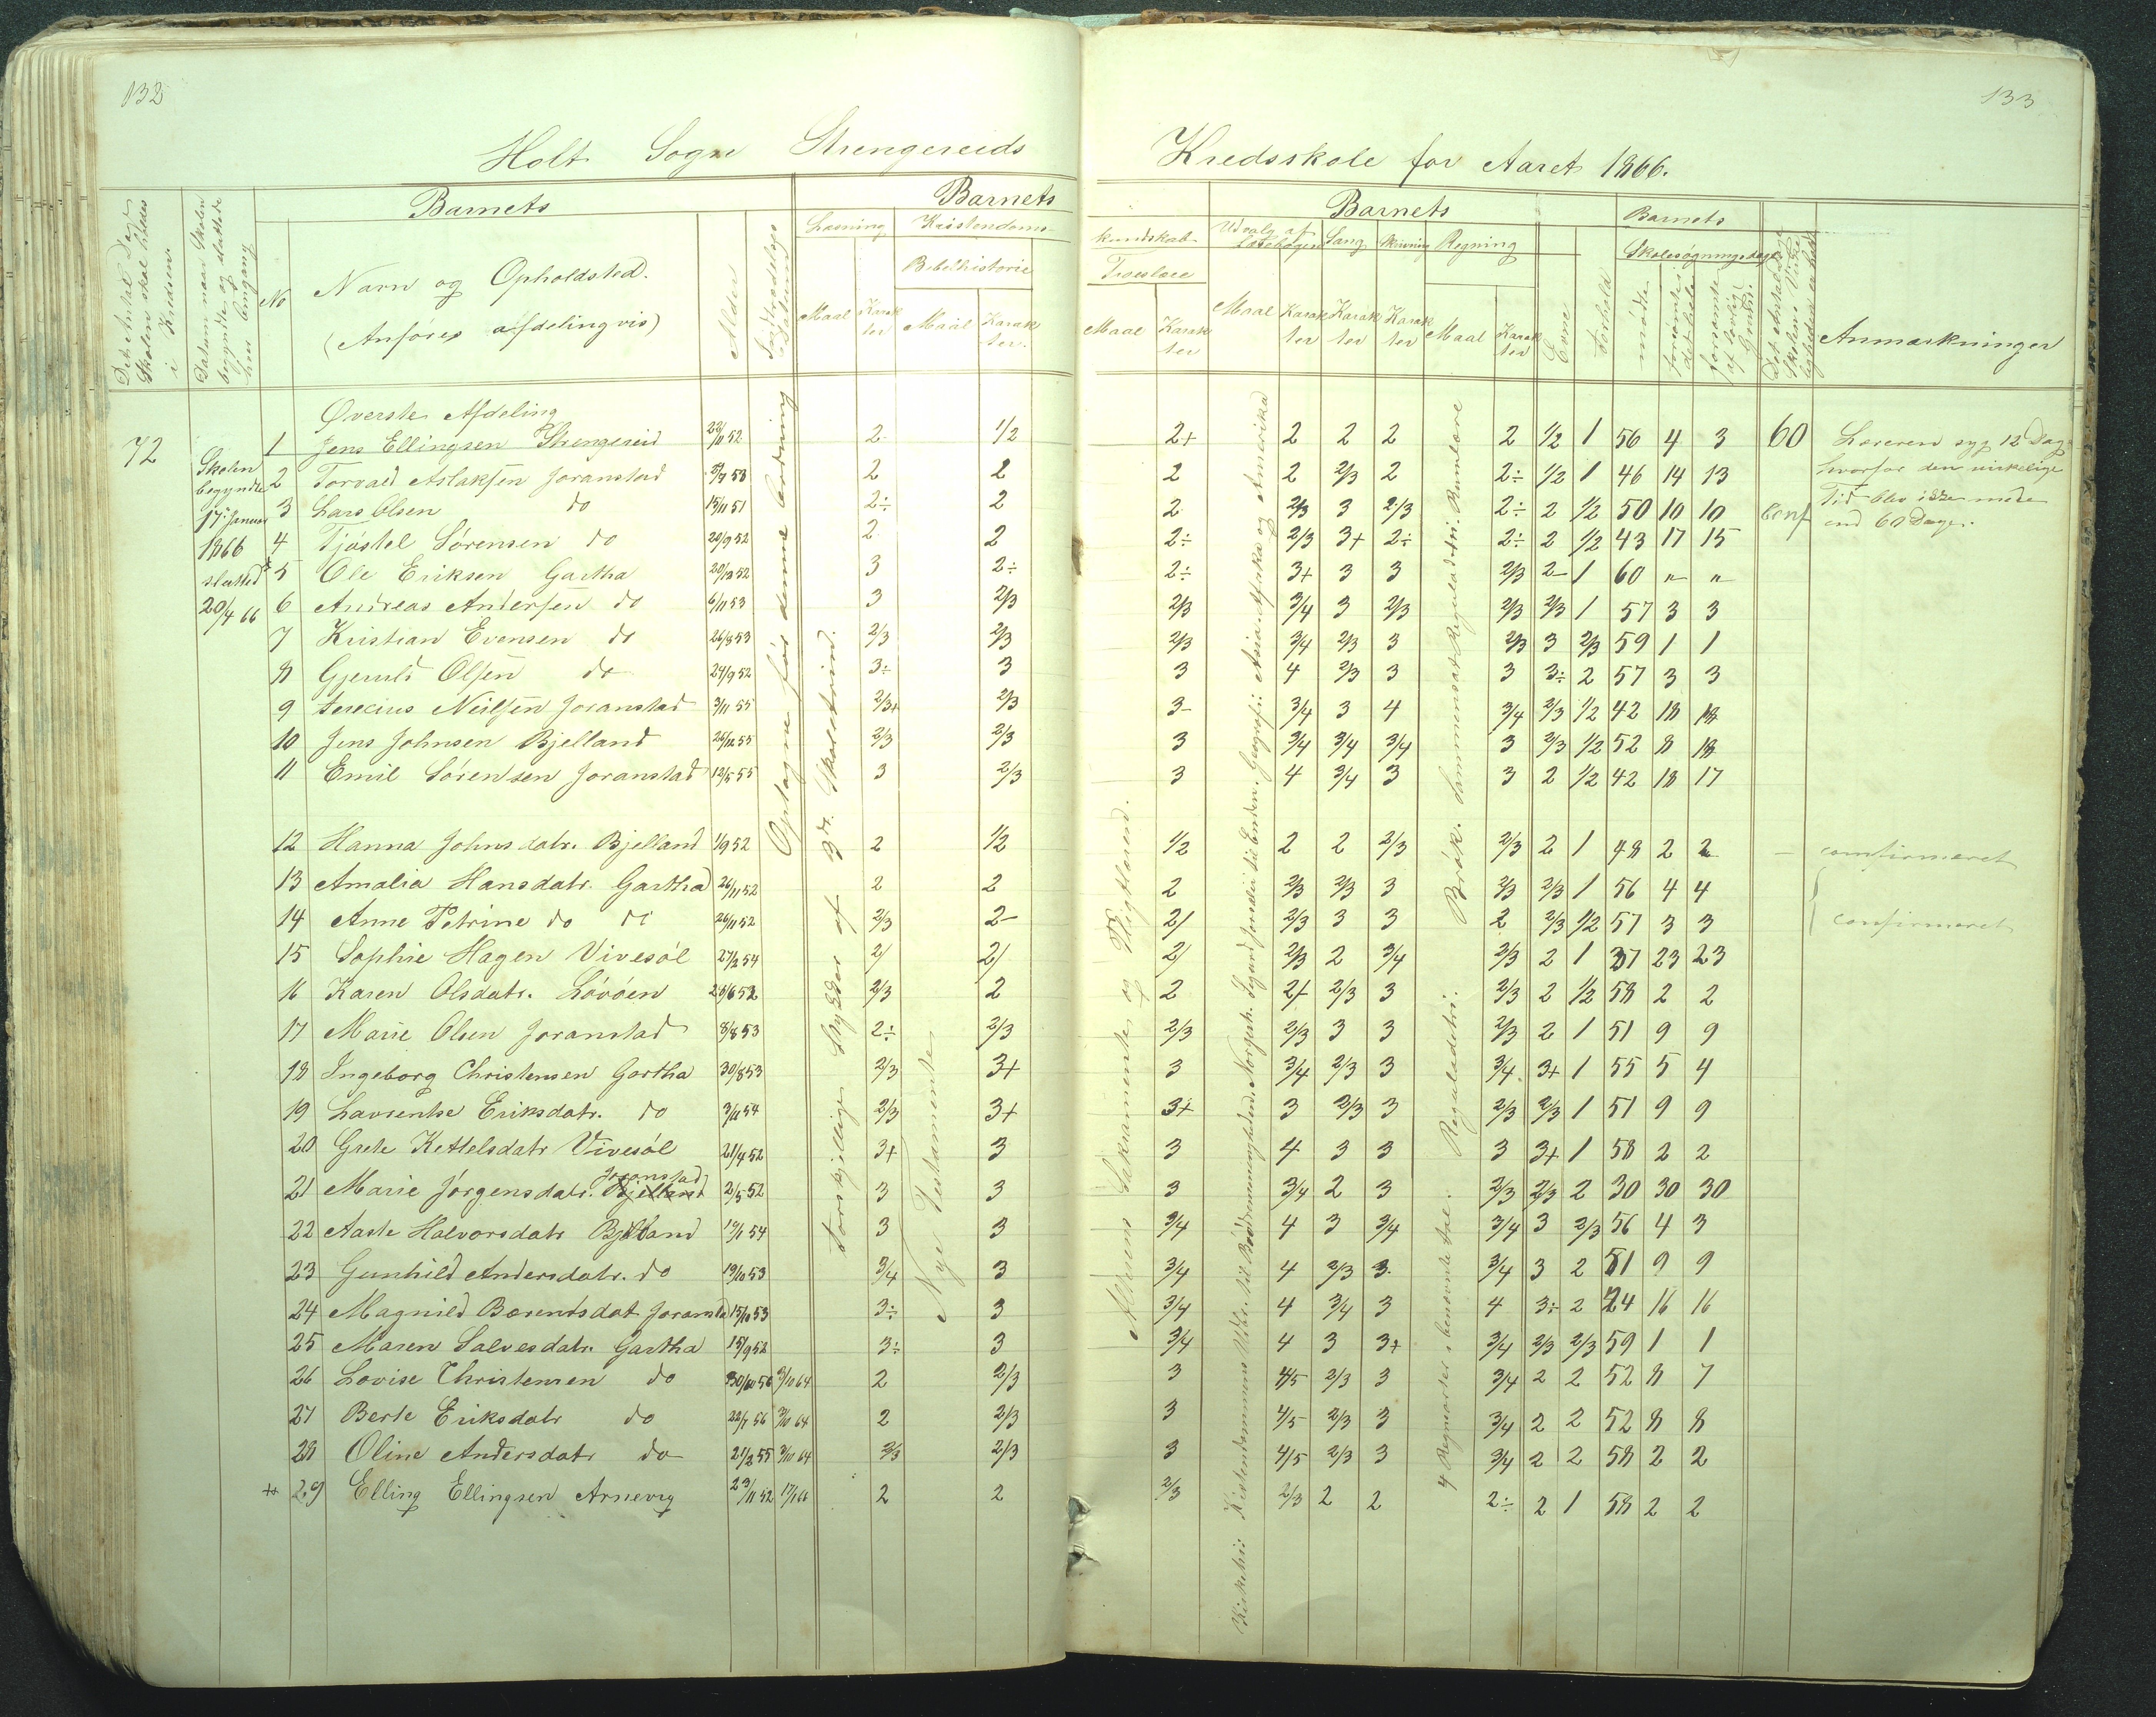 132
133
Holt Sogn Strengereids
Kredsskole for Aaret 1866.
Det Antal Dage Skolen skal holdes i Kredsen
Datum naar Skolen begyndte og sluttede hver Omgang
Barnets
No
Navn og Opholdsted.
(Anføres afdelingvis)
Alder
Indtrædelses Datum
Barnets
Læsning
Kristendoms-
Bibelhistorie
Maal
Karakter
Maal
Karakter.
kundskab
Troeslære
Maal
Karakter
Barnets
Udvalg af Læsebogen
Sang
Skrivning
Regning
Maal
Karakter
Karakter
Karakter
Maal
Karakter
Evne
Forhold
Barnets
Skolesøgningsdage
mødte
forsømte det hele
forsømte af lovlig Grund.
Anmærkninger
Optagne før denne Ordning
Forskjellige Stykker af 3die Skoletrin.
Nye Testamente
Altrens Sakramente og Vigtlored.
Øverste Afdeling
72
Skolen begyndte 17 Januar 1866 slutted 20/4 66
1 Jens Ellingsen Strengereid 22/11 52 2 1/2 2+ 2 2 2 2 1/2 1 56 4 3 60
Læreren syg 12 Dage
hvorfor den virkelige
Tid blev ikke mere
end 60 Dage.
2 Torvald Aslaksen Joranstad 2 2 2 2 2/3 2 2÷ 1/2 1 46 14 13
3 Lars Olsen do 15/11 51 2÷ 2 2 2/3 3 2/3 2÷ 2 1/2 50 10 10 Conf
4 Tjøstel Sørensen do 20/9 52 2 2 2÷ 2/3 3+ 2÷ 2÷ 2 1/2 43 17 15
5 Ole Eriksen Gartha 20/12 52 3 2÷ 2÷ 3+ 3 3 2/3 2- 1 60 " "
6 Andreas Andersen do 6/11 53 3 2/3 2/3 3/4 3 2/3 2/3 2/3 1 57 3 3
7 Kristian Evensen do 26/8 53 2/3 2/3 2/3 3/4 2/3 3 2/3 3 2/3 59 1 1
8 Gjeruld Olsen do 24/9 52 3÷ 3 3 4 2/3 3 3 3÷ 2 57 3 3
9 Neilsen Joranstad 3/11 55 2/3+ 2/3 3- 3/4 3 4 3/4 2/3 1/2 42 18 18
10 Jens Johnsen Bjelland 26/12 55 2/3 2/3 3 3/4 3/4 3/4 3 2/3 1/2 52 8 18
11 Emil Sørensen Joranstad 12/5 55 3 2/3 3 4 3/4 3 3 2 1/2 42 18 17
12 Hanna Johnsdatr. Bjelland 1/9 52 2 1/2 1/2 2 2 2/3 2/3 2 1 48 2 2 - confirmeret
13 Amalia Hansdatr. Gartha 26/11 52 2 2 2 2/3 2/3 3 2/3 2/3 1 56 4 4
14 Anne Petrine do do 26/11 52 2/3 2- 2/ 2/3 3 3 2 2/3 1/2 57 3 3 confirmeret
15 Sophie Hagen Vivesøl 27/2 54 2/ 2/ 2/ 2/3 2 3/4 2/3 2 1 37 23 23
16 Karen Olsdatr. Løvøen 25/6 52 2/3 2 2 2+ 2/3 3 2/3 2 1/2 58 2 2
17 Marie Olsen Joranstad 8/8 53 2÷ 2/3 2/3 2/3 3 3 2/3 2 1 51 9 9
18 Ingeborg Christensen Gartha 30/8 53 2/3 3+ 3 3/4 2/3 3 3/4 3+ 1 55 5 4
19 Lavrentse Eriksdatr. do 3/11 54 2/3 3+ 3+ 3 2/3 3 2/3 2/3 1 51 9 9
20 Grete Kettelsdatr Vivesøl 21/4 52 3+ 3 3 4 3 3 3 3+ 1 58 2 2
21 Marie Jørgensdatr. Joranstad 2/5 52 3 3 3 3/4 2 3 2/3 2/3 2 30 30 30
22 Aaste Halvorsdatr Bjelland 19/1 54 3 3 3/4 4 3 3/4 3/4 3 2/3 56 4 3
23 Gunhild Andersdatr. do 19/10 53 3/4 3 3/4 4 2/3 3 3/4 3 2 51 9 9
24 Magnild Berentsdat Joranstad 15/10 53 3÷ 3 3/4 4 3/4 3 4 3÷ 2 24 16 16
25 Maren Salvesdatr. Gartha 15/9 52 3÷ 3 3/4 4 3 3+ 3/4 2/3 2/3 59 1 1
26 Lovise Christensen do 30/10 56 3/10 64 2 2/3 3 4/5 2/3 3 3/4 2 2 52 8 7
27 Berte Eriksdatr do 22/7 56 3/10 64 2 2/3 3 4/5 2/3 3 3/4 2 2 52 8 8
28 Oline Andersdatr do 21/2 55 3/10 64 2/3 2/3 3 4/5 2/3 3 3/4 2 2 58 2 2
29 Elling Ellingsen Arnevig 23/11 52 17/1 66 2 2 2/3 2/3 2 2 2÷ 2 1 58 2 2